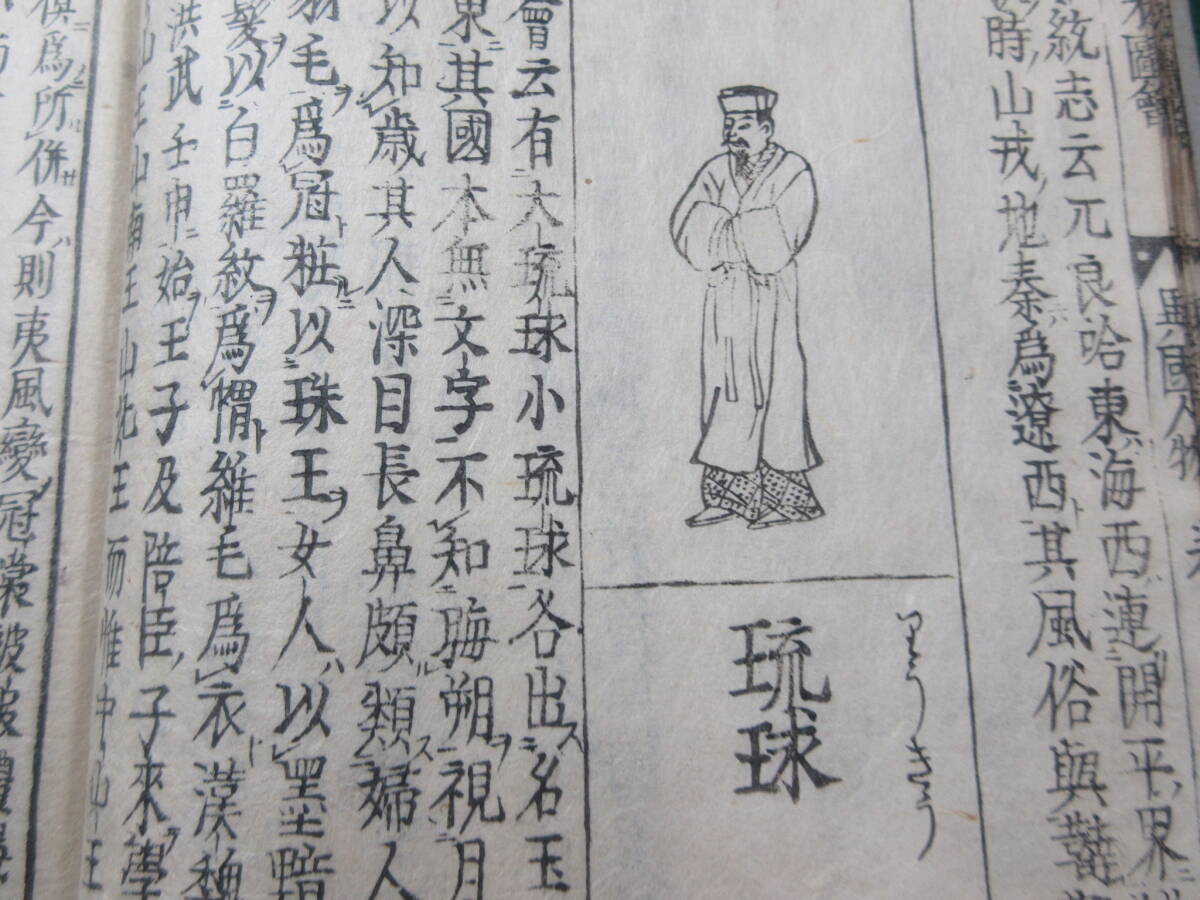 圖會
異國人物
紋志云兀良哈東海西連開平界
時山戎地秦爲遼西其風俗與韃
りうきう
琉球
會云有大琉球小琉球各出名玉
東其國本無文字不知晦朔視月
以知歲其人深目長鼻頗類婦人
毛爲冠粧以珠王女人以墨黥
髮以白羅紋爲帽雜毛爲衣漢
洪武壬申始王子及陪臣子來學
山王山南王山北王而惟中山王
爲所併今則夷風變冠裳